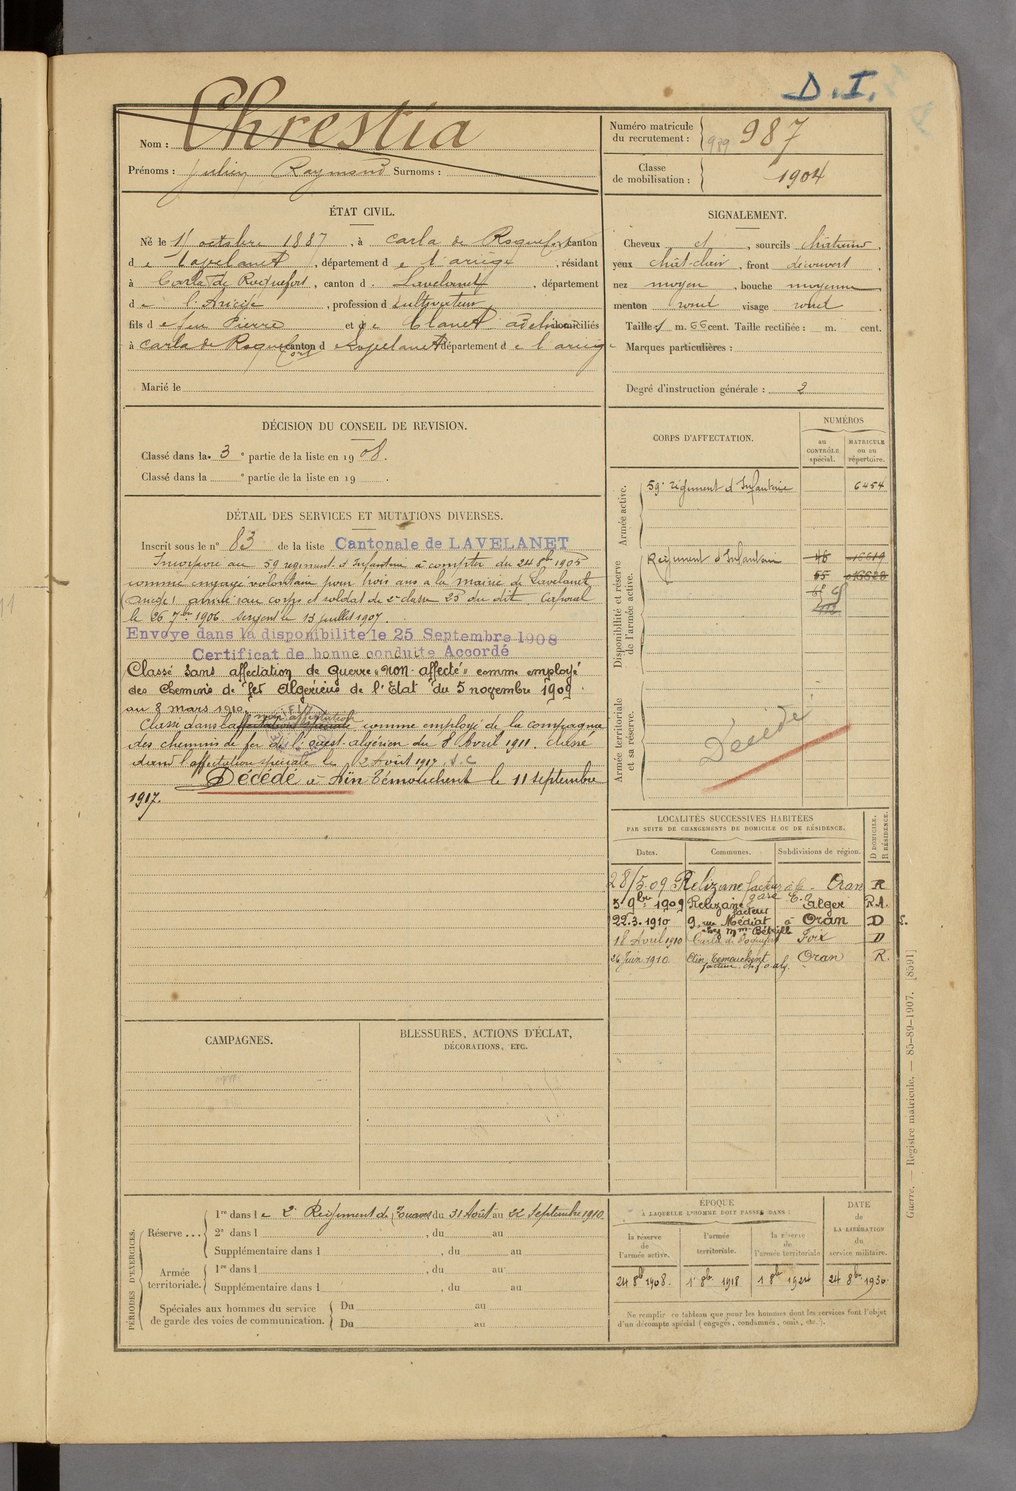 D.I.
Nom : Chrestia
Prénoms : Julien Raymond Surnoms :
Numéro matricule du recrutement : 939 987
Classe de mobilisation : 1904
ÉTAT CIVIL.
Né le 11 octobre 1887, à Carla de Roquefort, canton
de Lavelanet, département de l'ariège, résidant
à Carla de Roquefort, canton d Lavelanet, département
de l'Ariège, profession d cultivateur,
fils de feu Pierre et de Clanet adeline domiciliés
à Carla de Roquefort canton de Lavelanet département de l'ariège
Marié le
SIGNALEMENT.
Cheveux et, sourcils châtains,
yeux chât-clair, front découvert,
nez moyen, bouche moyenne
menton rond visage rond
Taille 1 m. 66 cent. Taille rectifiée : m. cent.
Marques particulières :
Degré d'instruction générale : 2
DÉCISION DU CONSEIL DE REVISION.
Classé dans la 3e partie de la liste en 1908.
Classé dans la e partie de la liste en 19 .
CORPS D'AFFECTATION.
NUMÉROS
au CONTRÔLE spécial.
MATRICULE ou au répertoire.
Armée active.
59e régiment d'Infanterie 6454
Disponibilité et réserve de l'armée active.
Régiment d'Infanterie
Armée territoriale et sa réserve.
Décédé
DÉTAIL DES SERVICES ET MUTATIONS DIVERSES.
Inscrit sous le n° 83 de la liste Cantonale de LAVELANET
Incorporé au 59 régiment d'Infanterie à compter du 24 8bre 1905
comme engagé volontaire pour trois ans a la mairie de Lavelanet
(ariège) arrivé au corps et soldat de 2e classe 25 du dit. Caporal
le 26 7bre 1906. Sergent le 13 juillet 1907.
Envoyé dans la disponibilité le 25 Septembre 1908
Certificat de bonne conduite Accordé
Classé sans affectation de Guerre "non-affecté" comme employé
des Chemins de fer Algériens de l'Etat du 5 novembre 1909
au 8 mars 1910.
Classé dans la non affectation comme employé de la compagnie
des chemins de fer de l'ouest-algérien du 8 Avril 1911. Classé
dans l'affectation spéciale le 2 Août 1917
Décédé à Aïn Témouchent le 11 septembre
1917.
LOCALITÉS SUCCESSIVES HABITÉES
PAR SUITE DE CHANGEMENTS DE DOMICILE OU DE RÉSIDENCE.
Dates. Communes. Subdivisions de région. D DOMICILE. R RÉSIDENCE.
28/5.09 Relizane facteur à la gare Oran R
5 9bre 1909 Relizane facteur Alger R.A.
22.3.1910 9 rue Médiat à Oran D
chez Mme
18 Avril 1910 Carla de Roquefort Foix D
26 Juin 1910 Aïn Temouchent Oran R.
facteur ch. f. o. alg.
CAMPAGNES.
BLESSURES, ACTIONS D'ÉCLAT,
DÉCORATIONS, ETC.
PÉRIODES D'EXERCICES.
Réserve ...
1re dans le 2e Régiment de Zouaves du 31 Août au 22 septembre 1910.
2e dans l , du au
Supplémentaire dans l , du au
Armée territoriale.
1re dans l , du au
Supplémentaire dans l , du au
Spéciales aux hommes du service
de garde des voies de communication.
Du au
Du au
EPOQUE
À LAQUELLE L'HOMME DOIT PASSER DANS :
la réserve de l'armée active.
l'armée territoriale.
la réserve de l'armée territoriale
DATE de LA LIBÉRATION du service militaire.
24 8b 1908. 1 8b 1918 1 8b 1924 24 8bre 1930
Ne remplir ce tableau que pour les hommes dont les services font l'objet
d'un décompte spécial (engagés, condamnés, omis, etc.).
Guerre. — Registre matricule. — 85-89-1907. [8591]